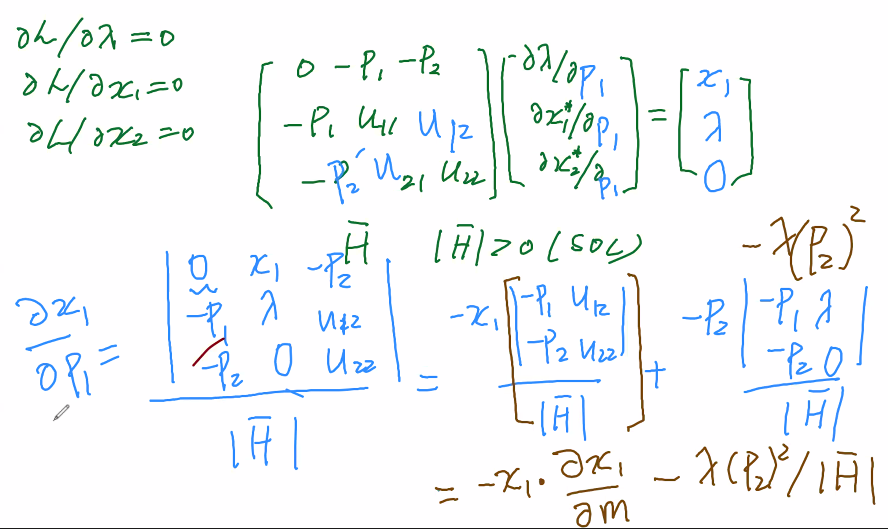 ∂L/∂λ = 0
∂L/∂x₁ = 0
∂L/∂x₂ = 0
[ 0 -P₁ -P₂ ; -P₁ U₁₁ U₁₂ ; -P₂ U₂₁ U₂₂ ] [ -∂λ/∂P₁ ; ∂x₁*/∂P₁ ; ∂x₂*/∂P₁ ] = [ x₁ ; λ ; 0 ]
H̄ |H̄| > 0 (SOC) -λ(P₂)²
∂x₁/∂P₁ = | 0 x₁ -P₂ ; -P₁ λ U₁₂ ; -P₂ 0 U₂₂ | / |H̄| = -x₁ [ | -P₁ U₁₂ ; -P₂ U₂₂ | / |H̄| ] + -P₂ | -P₁ λ ; -P₂ 0 | / |H̄|
= -x₁ · ∂x₁/∂m - λ(P₂)² / |H̄|